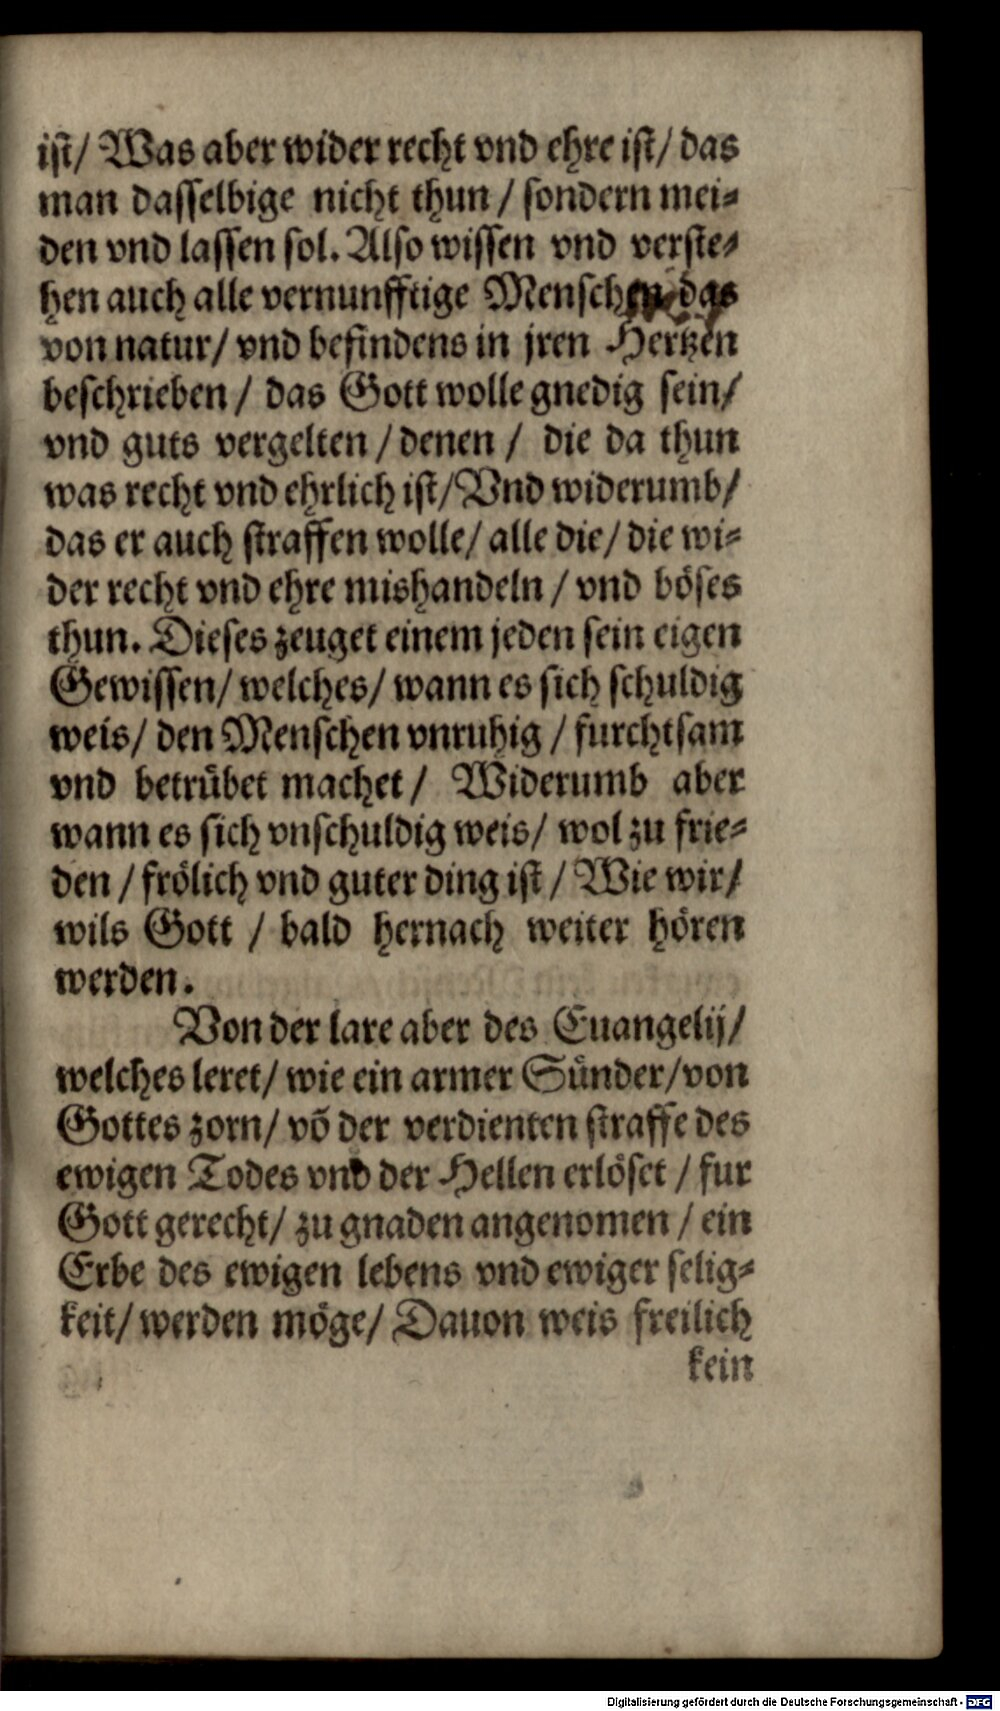 ist/ Was aber wider recht vnd ehre ist/ das
man dasselbige nicht thun / sondern mei⸗
den vnd lassen sol. Also wissen vnd verste⸗
hen auch alle vernunfftige Menschen das
von natur/ vnd befindens in jren Hertzen
beschrieben / das Gott wolle gnedig sein/
vnd guts vergelten / denen / die da thun
was recht vnd ehrlich ist/ Vnd widerumb/
das er auch straffen wolle/ alle die/ die wi⸗
der recht vnd ehre mishandeln / vnd böses
thun. Dieses zeuget einem jeden sein eigen
Gewissen/ welches/ wann es sich schuldig
weis/ den Menschen vnruhig / furchtsam
vnd betrübet machet / Widerumb aber
wann es sich vnschuldig weis/ wol zu frie⸗
den / frölich vnd guter ding ist / Wie wir/
wils Gott / bald hernach weiter hören
werden.
Von der lare aber des Euangelij/
welches leret/ wie ein armer Sünder/ von
Gottes zorn/ võ der verdienten straffe des
ewigen Todes vnd der Hellen erlöset / fur
Gott gerecht/ zu gnaden angenomen / ein
Erbe des ewigen lebens vnd ewiger selig⸗
keit/ werden möge/ Dauon weis freilich
kein
Digitalisierung gefördert durch die Deutsche Forschungsgemeinschaft - DFG